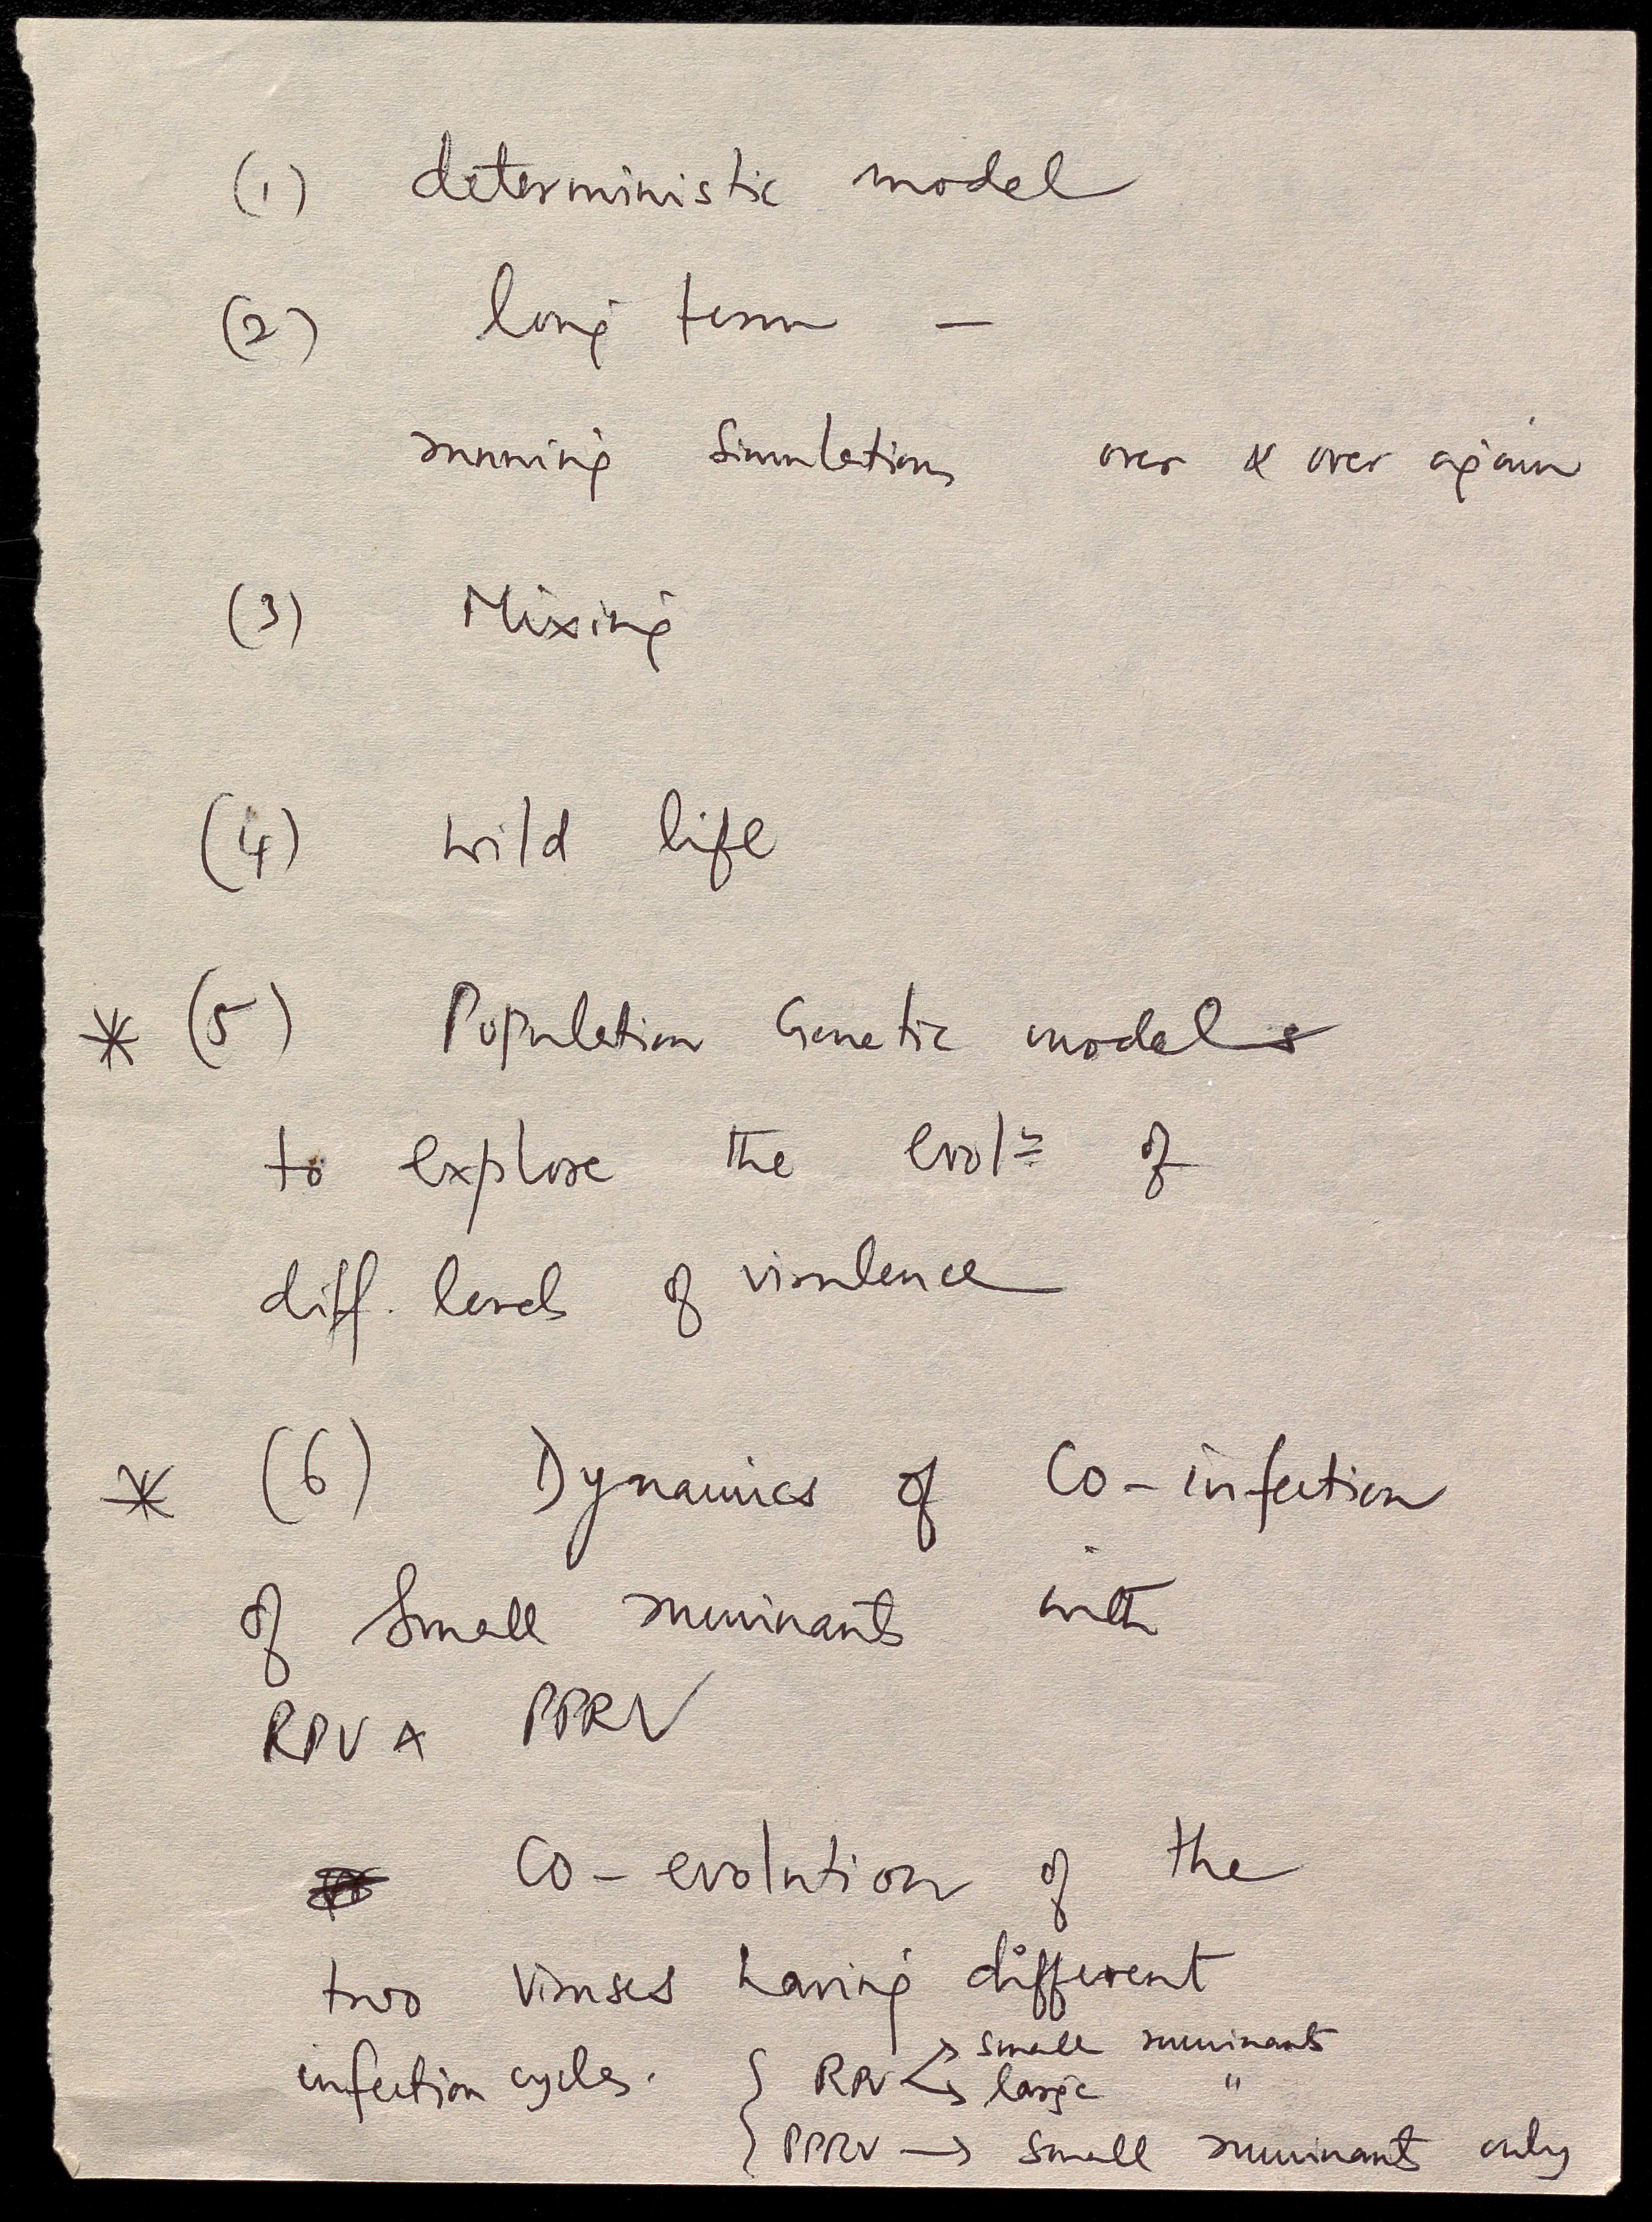 (1) deterministic model
(2) long term —
running simulations over & over again
(3) Mixing
(4) wild life
* (5) Population Genetic models
to explore the evolⁿ of
diff. levels of virulence
* (6) Dynamics of Co-infection
of small ruminants with
RPV & PPRV
Co-evolution of the
two viruses having different
infection cycles. { RPV → small ruminants
→ large "
{ PPRV → small ruminants only